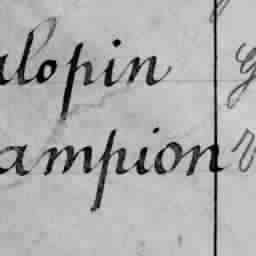 alopin
ampion